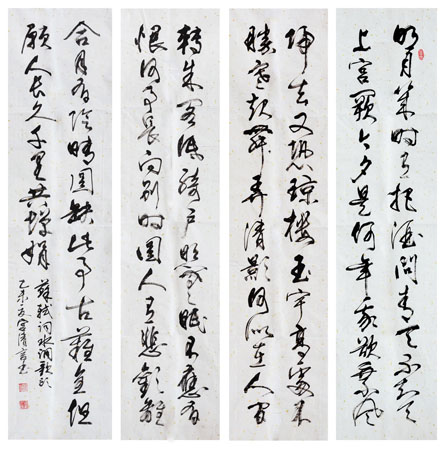 明月幾時有把酒問青天不知天
上宮闕今夕是何年我欲乘風
歸去又恐瓊樓玉宇高處不
勝寒起舞弄清影何似在人間
轉朱閣低綺戶照無眠不應有
恨何事長向別時圓人有悲歡離
合月有陰晴圓缺此事古難全但
願人長久千里共嬋娟
蘇軾詞水調歌頭
乙未